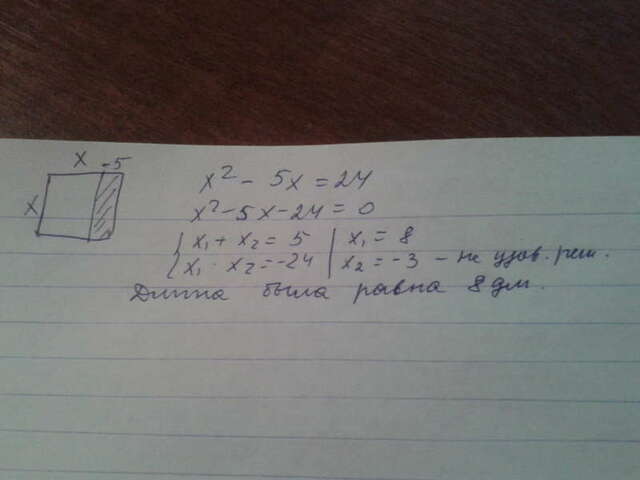 x -5
x
x² - 5x = 24
x² - 5x - 24 = 0
{ x₁ + x₂ = 5 | x₁ = 8
{ x₁ · x₂ = -24 | x₂ = -3 - не удов. реш.
Длина была равна 8 дм.